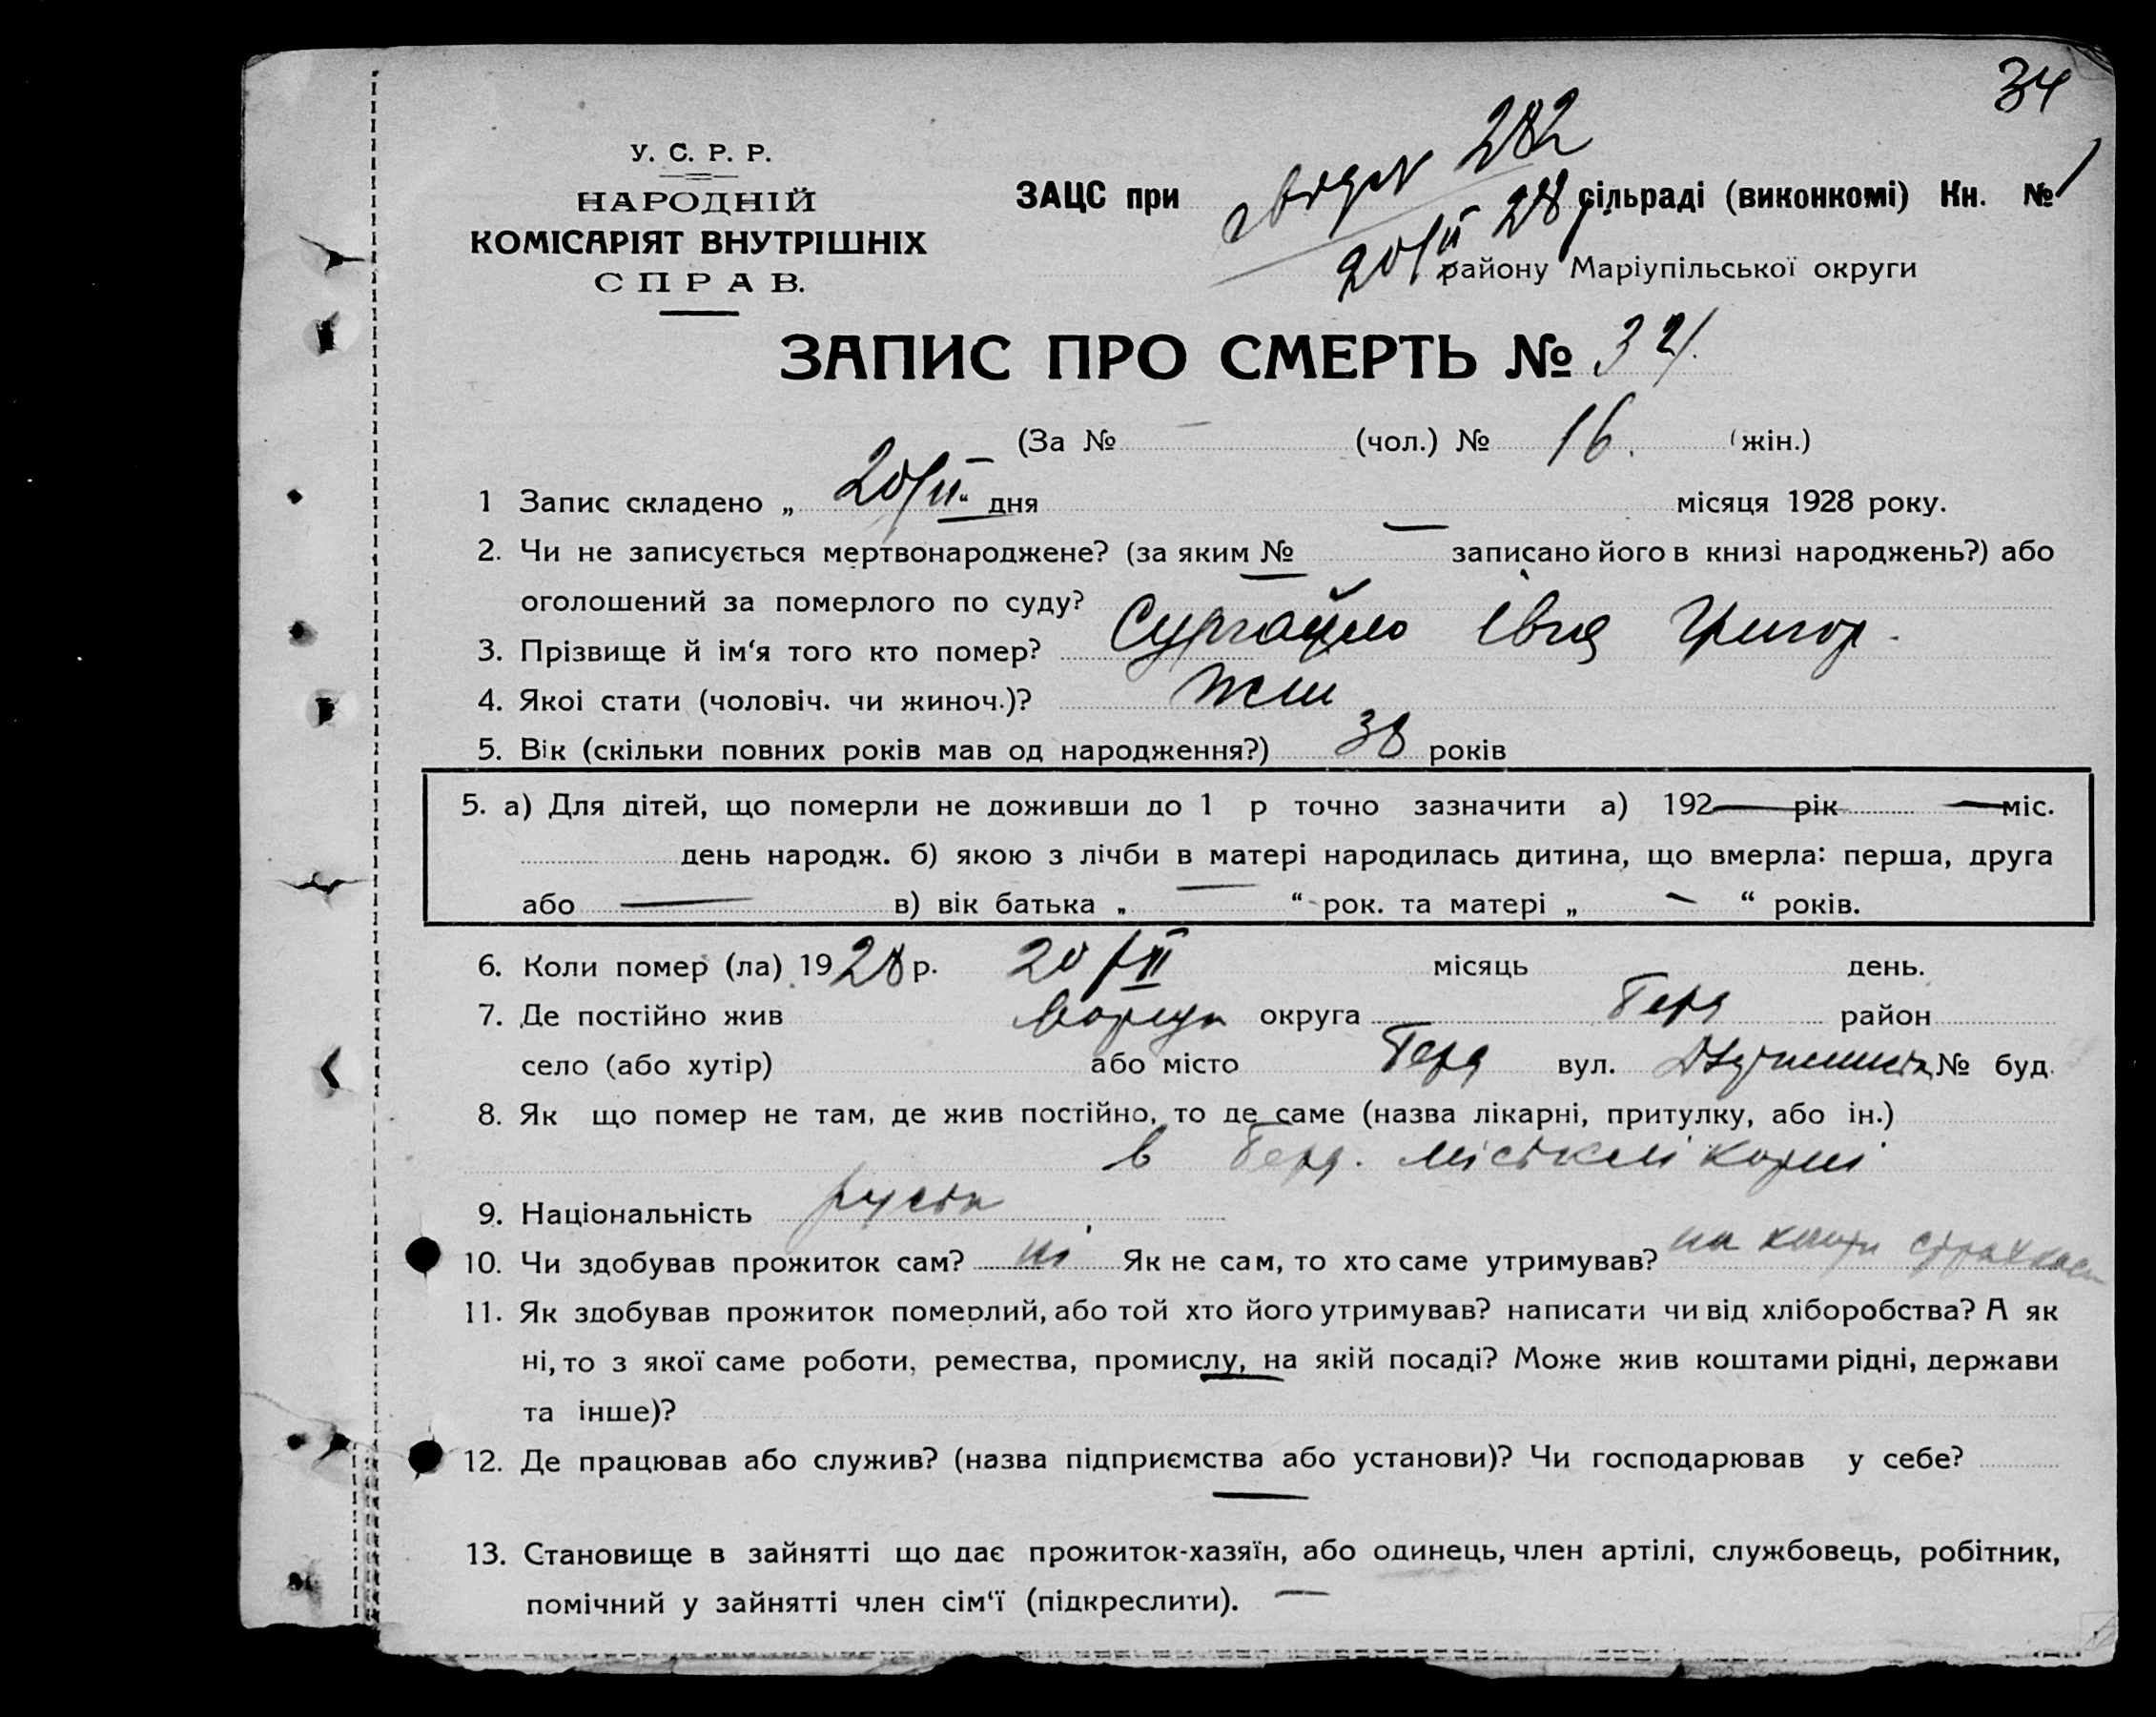 34
У. С. Р. Р.
НАРОДНІЙ
КОМІСАРІЯТ ВНУТРІШНІХ
СПРАВ.
282
ЗАЦС при 20/II 28 р. сільраді (виконкомі) Кн. № 1
району Маріупільської округи
ЗАПИС ПРО СМЕРТЬ № 34.
(За № — (чол.) № 16. (жін.)
1 Запис складено „ 20/II “ дня — місяця 1928 року.
2. Чи не записується мертвонароджене? (за яким № — записано його в книзі народжень?) або
оголошений за померлого по суду? —
3. Прізвище й ім‘я того кто помер? Григор.
4. Якої стати (чоловіч. чи жиноч.)? жін
5. Вік (скільки повних років мав од народження?) 38 років
5. а) Для дітей, що померли не доживши до 1 р точно зазначити а) 192— рік — міс.
день народж. б) якою з лічби в матері народилась дитина, що вмерла: перша, друга
або — в) вік батька „ — “ рок. та матері „ — “ років.
6. Коли помер (ла) 1928 р. 20/II місяць день.
7. Де постійно жив округа Берд район
село (або хутір) або місто Берд вул. № буд.
8. Як що помер не там, де жив постійно, то де саме (назва лікарні, притулку, або ін.)
в Берд. міській лікарні
9. Національність руська
10. Чи здобував прожиток сам? ні Як не сам, то хто саме утримував? на кошти страхкаси
11. Як здобував прожиток померлий, або той хто його утримував? написати чи від хліборобства? А як
ні, то з якої саме роботи, ремества, промислу, на якій посаді? Може жив коштами рідні, держави
та інше)?
12. Де працював або служив? (назва підприємства або установи)? Чи господарював у себе?
—
13. Становище в зайнятті що дає прожиток-хазяїн, або одинець, член артілі, службовець, робітник,
помічний у зайнятті член сім‘ї (підкреслити). —